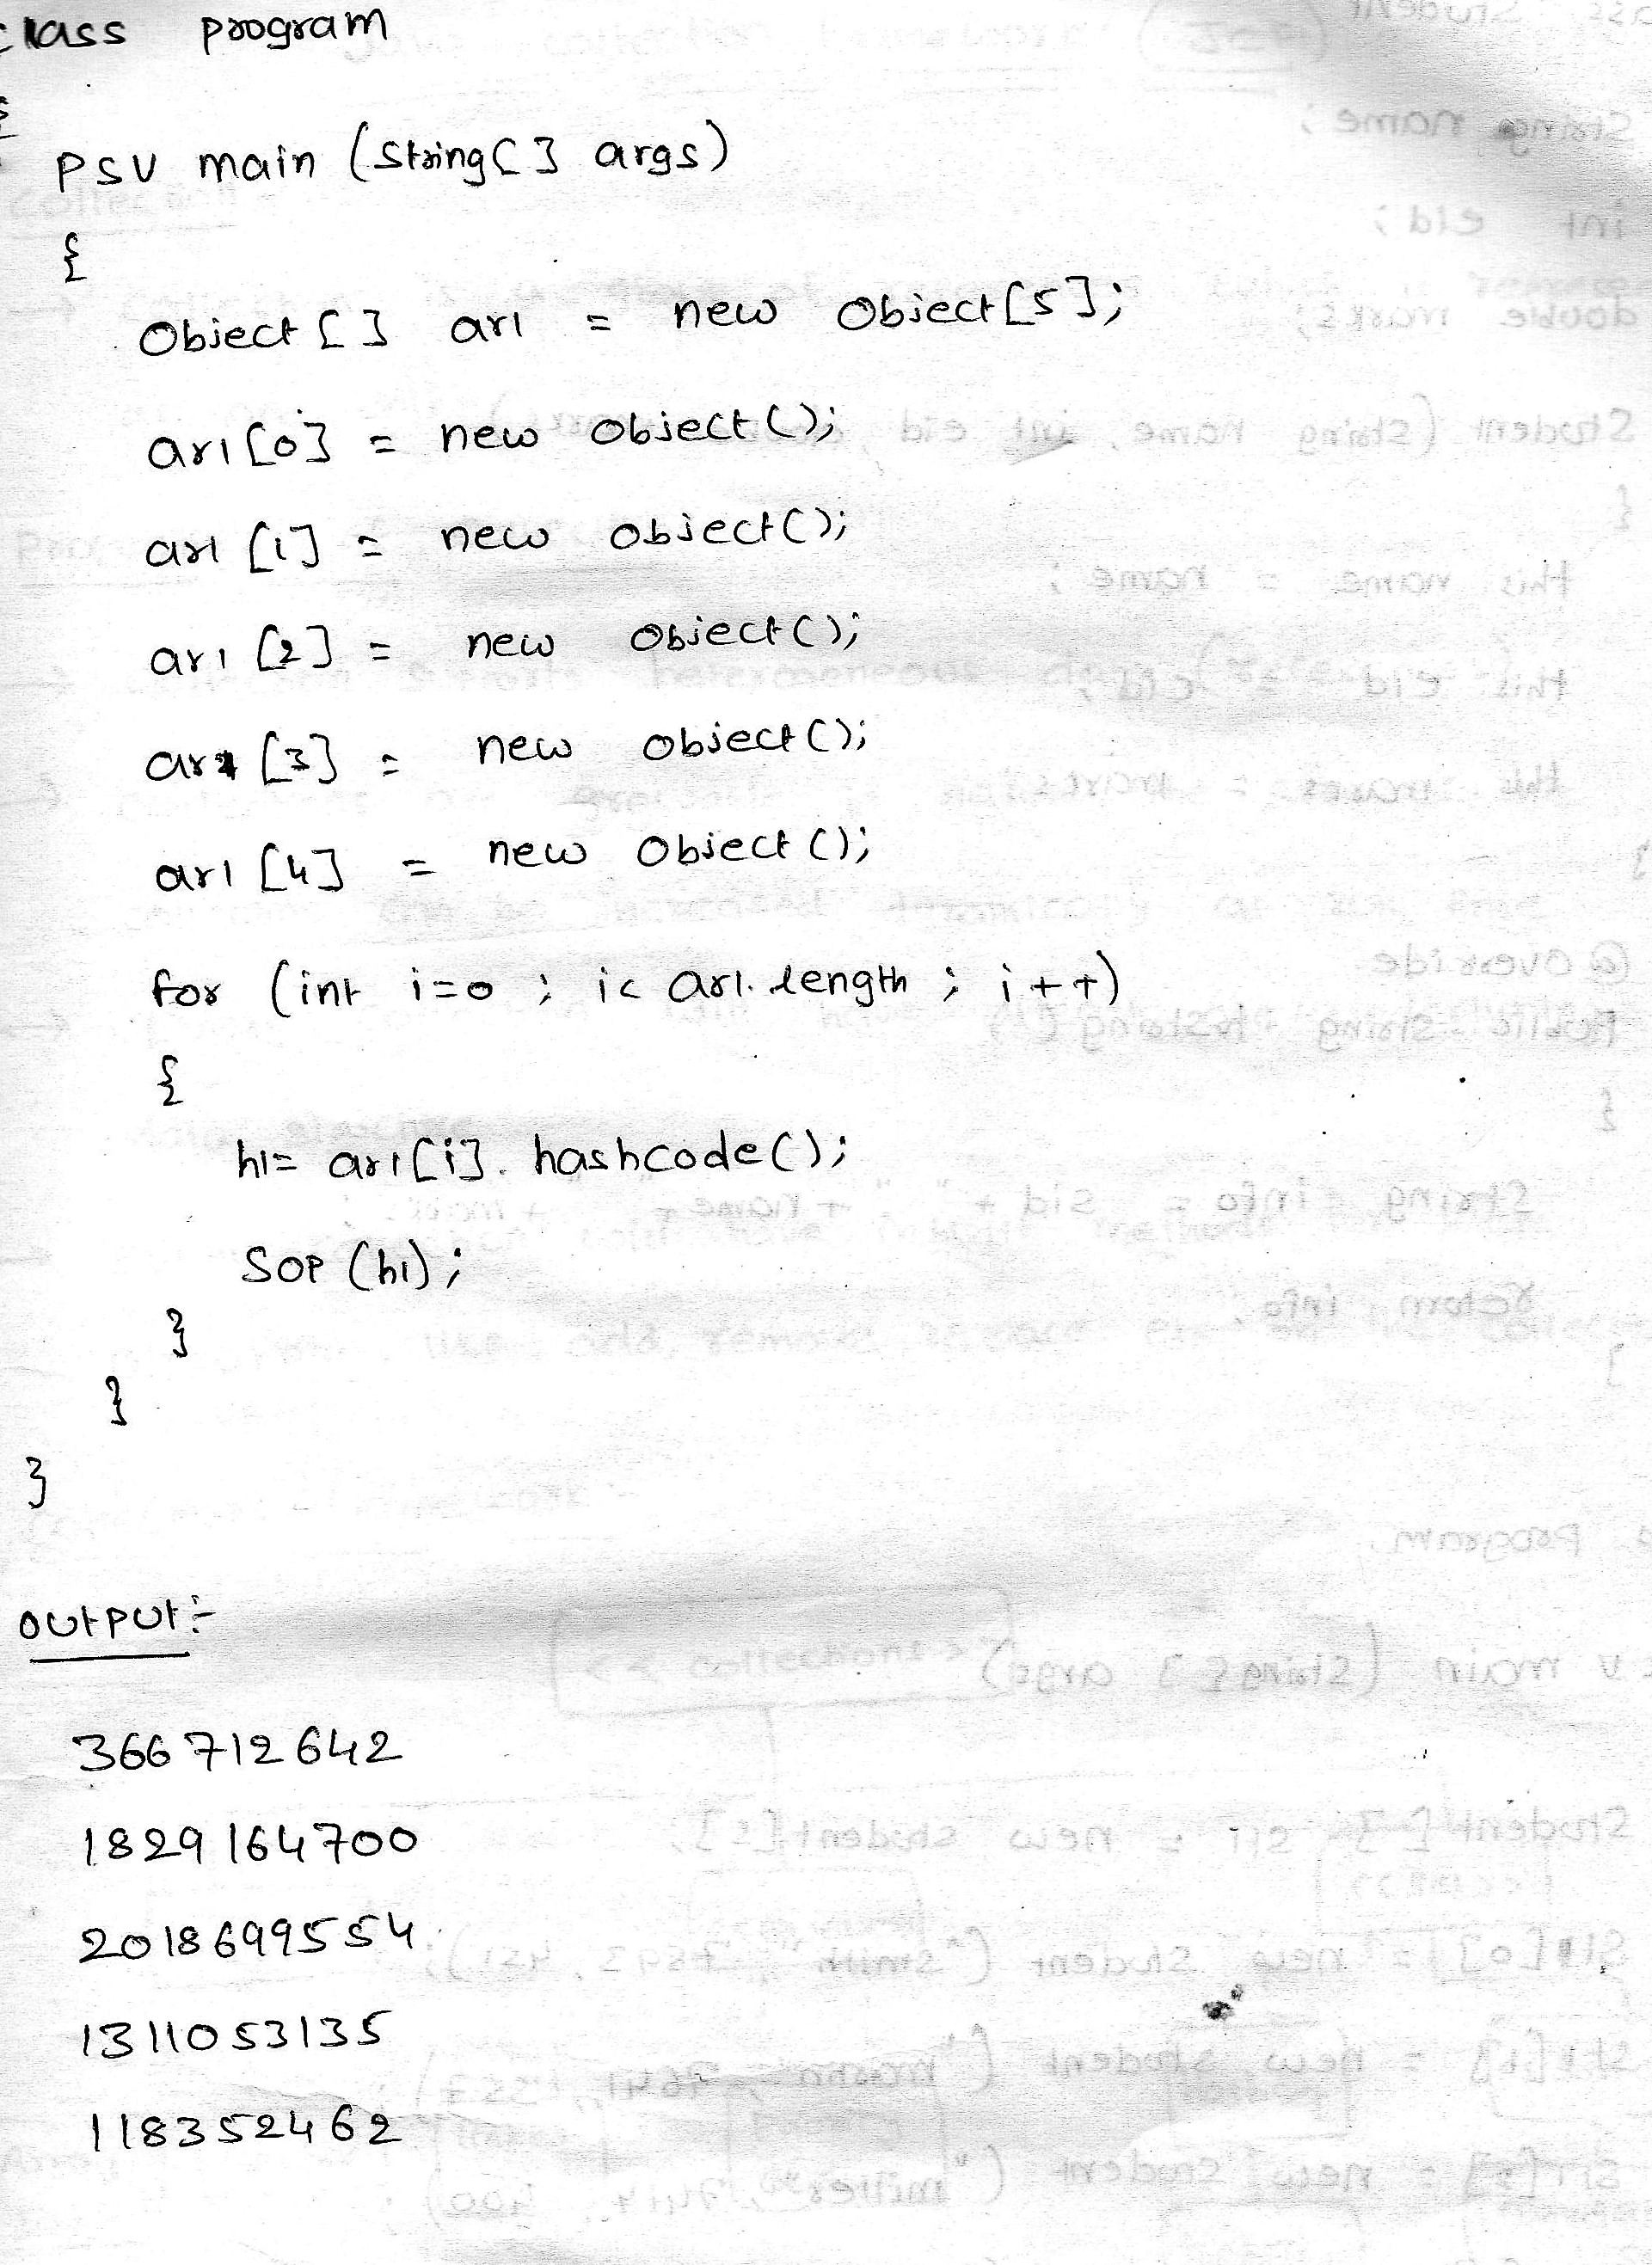 class program
{
PSV main (String[] args)
{
Object [] ar1 = new Object[5];
ar1[0] = new object();
ar1 [1] = new object();
ar1 [2] = new Object();
ar1 [3] = new object();
ar1 [4] = new Object();
for (int i=0 ; i< ar1.length ; i++)
{
h1= ar1[i]. hashcode();
SOP (h1);
}
}
}
output:-
366712642
1829164700
2018699554
1311053135
118352462